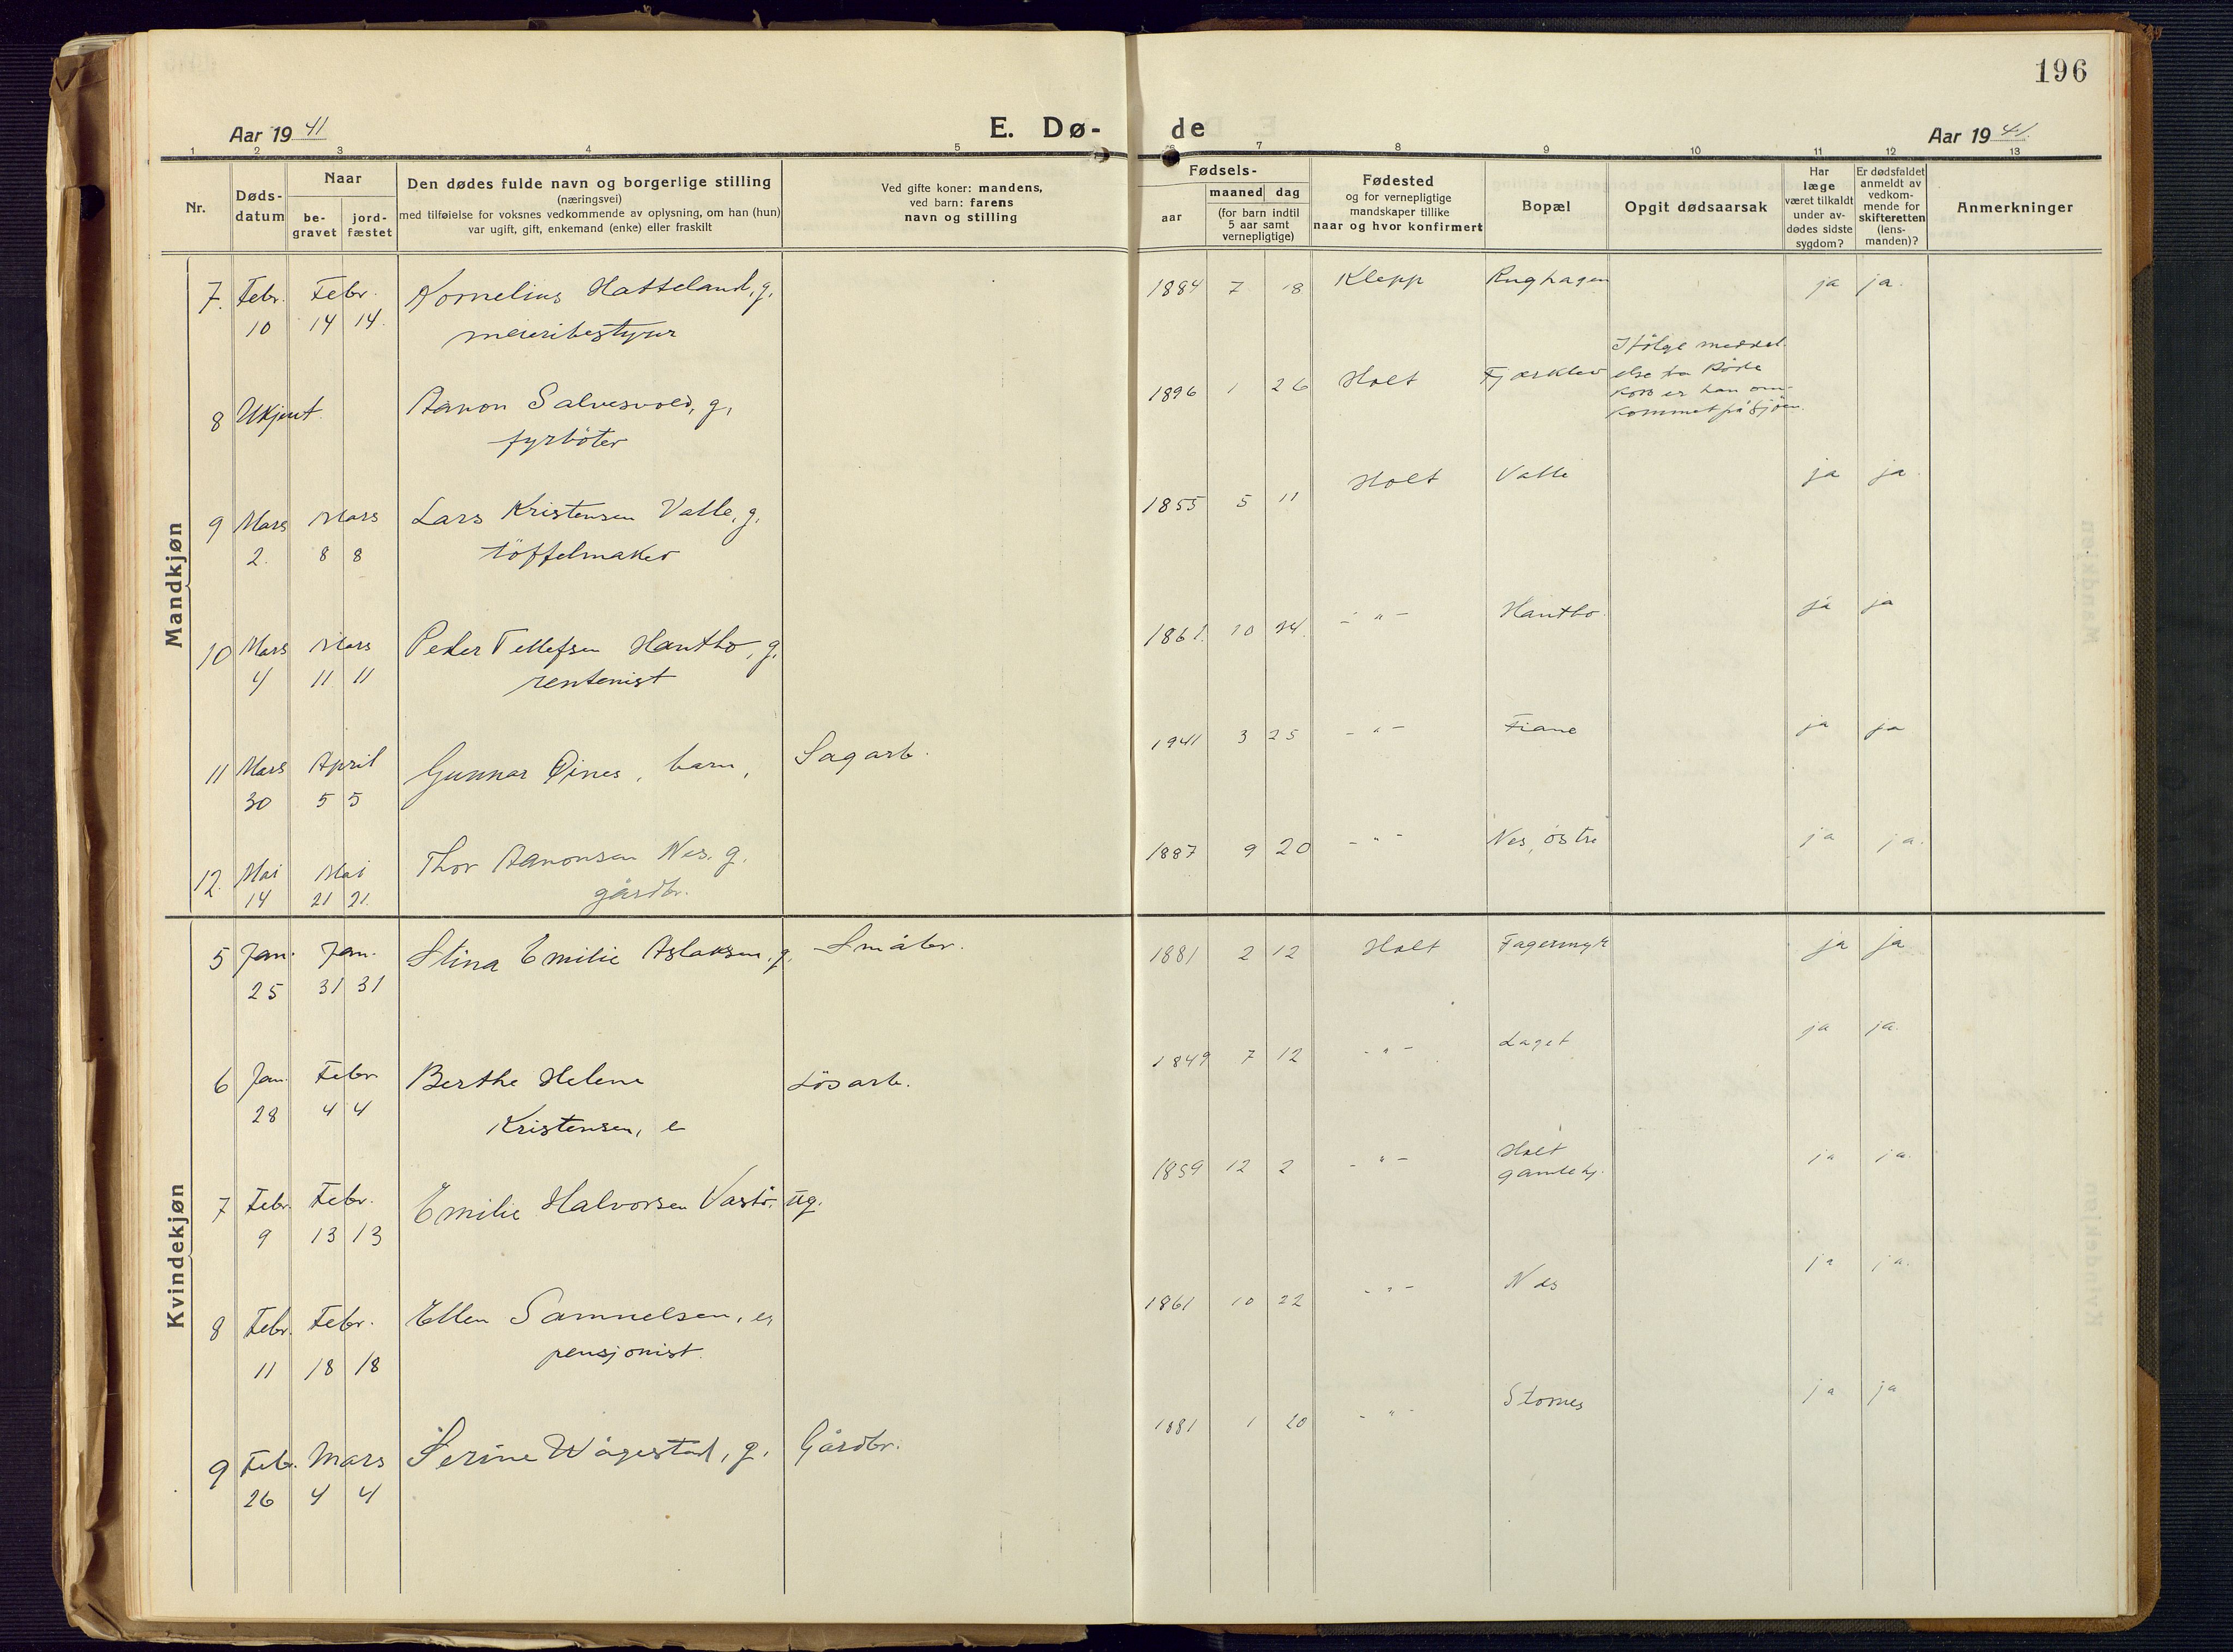 196
Aar 19 41
E. Dø-
de
Aar 19 41.
1 2 3 4 5 6 7 8 9 10 11 12 13
Nr.
Døds-
datum
Naar
be-
gravet
jord-
fæstet
Den dødes fulde navn og borgerlige stilling
(næringsvei)
med tilføielse for voksnes vedkommende av oplysning, om han (hun)
var ugift, gift, enkemand (enke) eller fraskilt
Ved gifte koner: mandens,
ved barn: farens
navn og stilling
Fødsels-
aar
maaned dag
(for barn indtil
5 aar samt
vernepligtige)
Fødested
og for vernepligtige
mandskaper tillike
naar og hvor konfirmert
Bopæl
Opgit dødsaarsak
Har
læge
været tilkaldt
under av-
dødes sidste
sygdom?
Er dødsfaldet
anmeldt av
vedkom-
mende for
skifteretten
(lens-
manden)?
Anmerkninger
Mandkjøn
7. Febr. Febr. Kornelius Hatteland, g. 1884 7 18 Klepp Rughagen ja ja.
10 14 14. meieribestyrer
8 Ukjent. Aanon Salvesvold, g, 1896 1 26 Holt Fjærkleiv
fyrböter
Ifölge meddel.
else fra Röde
Kors er han om-
kommet på sjöen.
9 Mars Mars Lars Kristensen Valle, g. 1855 5 11 Holt Valle ja ja.
2. 8 8 töffelmaker
10 Mars Mars Peder Tellefsen Hantho, g. 1861. 10 24. - " - Hantho. ja ja
4 11 11 rentenist
11 Mars April Gunnar Øines, barn, Sagarb. 1941 3 25 - " - Fiane ja ja
30 5 5
12. Mai Mai Thor Aanonsen Nes. g. 1887 9 20 - " - Nes, östre ja ja.
14 21 21. gårdbr.
Kvindekjøn
5 Jan. Jan. Stina Emilie Aslaksen, g. Småbr. 1881 2 12 Holt Fagermyr ja ja
25 31 31
6 Jan. Febr Berthe Helene Lösarb. 1849 7 12 - " - Laget ja ja.
28 4 4 Kristensen, e
7 Febr. Febr. Emilie Halvorsen ug. 1859 12 2 - " - Holt ja ja.
gamlehj.
9 13 13
8 Febr. Febr. Ellen Samuelsen, e, 1861 10 22 - " - Nes ja ja.
11 18 18 pensjonist.
9 Febr. Mars Serine Wågestad, g. Gårdbr. 1881 1 20 - " - Stornes ja ja
26 4 4